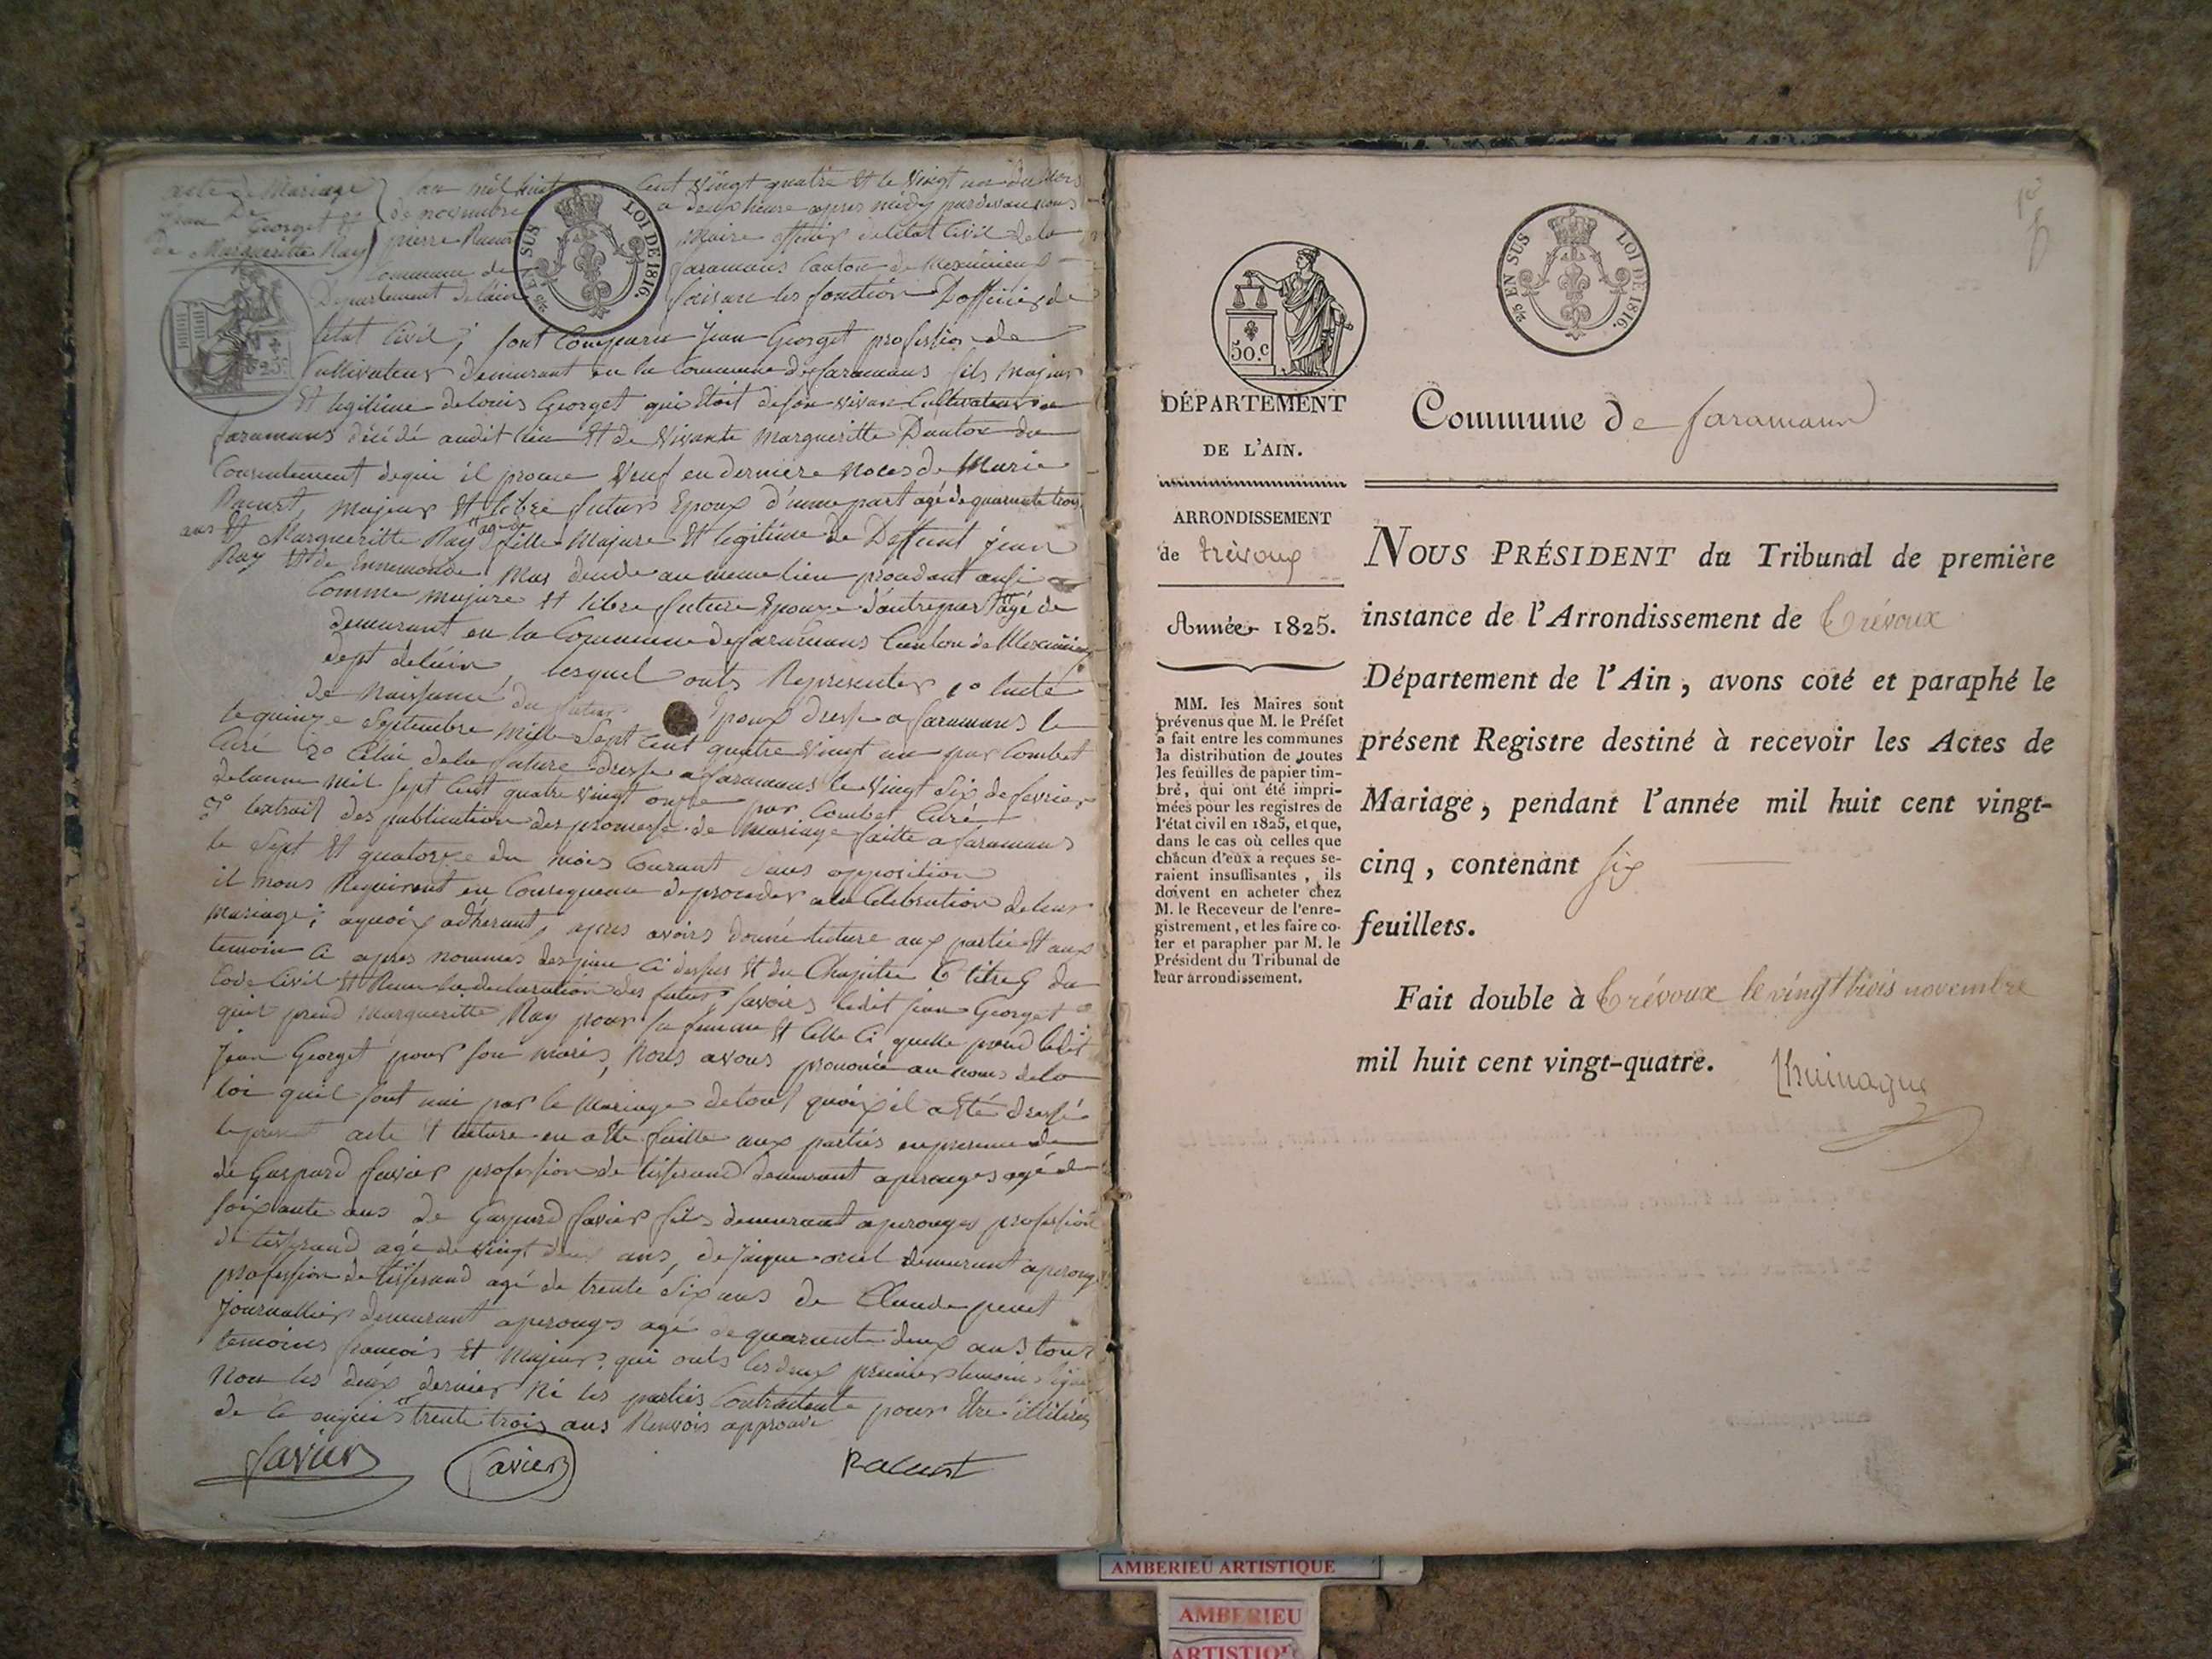 acte de Mariage
De
Jean Georget et
De Margueritte Ray
Lan mil huit cent vingt quatre et le vingt un du mois
de novembre a deux heure apres midy pardevant nous
pierre Racurt Maire officier de letat Civil de la
Commune de faramans Canton de Meximieux
Departement de lain faisant les fonction D'officier de
letat Civil, sont Comparu Jean Georget profession de
Cultivateur demurant en la Commune de faramans fils majeur
et legitime de louis Georget qui etoit de son vivant Cultivateur a
faramans décédé audit lieu et de vivante Margueritte Dautox du
Consentement de qui il procce Veuf en derniere noces de Marie
Racurt, majeur et libre futur Epoux d'une part agé de quarante trois
ans et Margueritte Ray fille Majure et legitime De Deffunt jean
Ray et de Ennemonde Mas au meme lieu procdant ausi
Comme majure et libre future Epouxe d'autre part agé de
demurant en la Commune de faramans Canton de Meximieux
Dept de lain, lesquel onts Representer 1º lacte
de Naissance du futur Epoux dresse a faramans le
le quinze Septembre mille Sept Cent quatre vingt un par Combet
Curé 2º Celui de la future dresse a faramans le vingt Six de fevrier
de lanne mil Sept Cent quatre vingt onze par Combet Curé
3º lextrait des publication des promesse de Mariage faitte a faramans
le Sept et quatorze du mois Courant Sans opposition
il nous Requirent en Consequence de proceder a la Celebration de leur
Mariage; aquoix adherant, apres avoirs donné lecture aux partie et aux
temoin Ci apres nommes des piece Ci dessus et du Chapitre 6 titre 5 du
Code Civil et Recu la declaration des futurs savoirs ledit jean Georget
quil prend Margueritte Ray pour sa femme et Celle Ci quelle prend ledit
Jean Georget pour son maris, Nous avons prononcé au nom de la
loi quil sont uni par le Mariage de tout quoix il a eté dressé
le present acte et lecture en a ete faitte aux parties en presence de
de Gaspard favier profession de tisserand demeurant a perouges agé de
soixante ans de Gaspard favier fils demeurant a perouges profession
de tisserand agé de vingt deux ans, de Jaique orcel demeurant a perouges
profession de tisserand agé de trente Six ans de Claude penet
Journallier demeurant a perouges agé de quarante deux ans tout
temoins francois et Majeurs, qui onts les deux premier temoins signé
Non les deux dernier Ni les parties Contractante pour Etre illiterés
de ce enquis trente trois ans Renvois approuvé
favier favier Racurt
3/5 EN SUS LOI DE 1816.
50.c
DÉPARTEMENT
DE L'AIN.
ARRONDISSEMENT
de trévoux
Année 1825.
MM. les Maires sont
prévenus que M. le Préfet
a fait entre les communes
la distribution de toutes
les feuilles de papier tim-
bré, qui ont été impri-
mées pour les registres de
l'état civil en 1825, et que,
dans le cas où celles que
chacun d'eux a reçues se-
raient insuffisantes, ils
doivent en acheter chez
M. le Receveur de l'enre-
gistrement, et les faire co-
ter et parapher par M. le
Président du Tribunal de
leur arrondissement.
EN SUS LOI DE 1816.
Commune de faramans
NOUS PRÉSIDENT du Tribunal de première
instance de l'Arrondissement de Trévoux
Département de l'Ain, avons coté et paraphé le
présent Registre destiné à recevoir les Actes de
Mariage, pendant l'année mil huit cent vingt-
cinq, contenant six
feuillets.
Fait double à Trévoux le vingt trois novembre
mil huit cent vingt-quatre.
AMBERIEU ARTISTIQUE
AMBERIEU
ARTISTIQUE